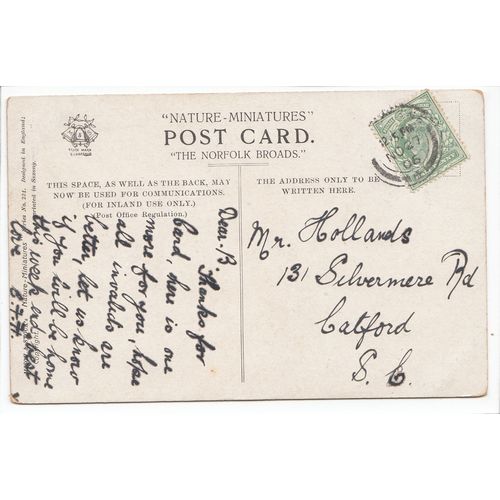 "NATURE-MINIATURES"
POST CARD.
"THE NORFOLK BROADS."
THIS SPACE, AS WELL AS THE BACK, MAY
NOW BE USED FOR COMMUNICATIONS.
(FOR INLAND USE ONLY.)
(Post Office Regulation.)
THE ADDRESS ONLY TO BE
WRITTEN HERE.
TRADE MARK
Nature-Miniatures Series No. 231. Designed in England;
Printed in Saxony.
Copyright
Dear B Thanks for
card, here is one
more for you, hope
all invalids are
better, let us know
if you will be home
this week end best
love
Mr. Hollands
131 Silvermere Rd
Catford
S. E.